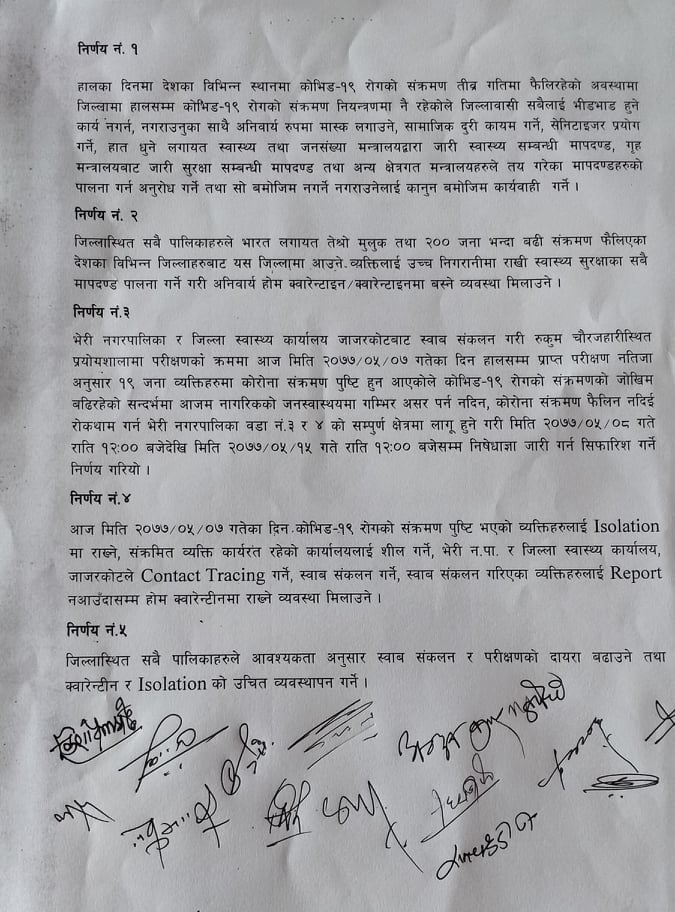 निर्णय नं. १
हालका दिनमा देशका विभिन्न स्थानमा कोभिड-१९ रोगको संक्रमण तीव्र गतिमा फैलिरहेको अवस्थामा
जिल्लामा हालसम्म कोभिड-१९ रोगको संक्रमण नियन्त्रणमा नै रहेकोले जिल्लावासी सबैलाई भीडभाड हुने
कार्य नगर्न, नगराउनुका साथै अनिवार्य रुपमा मास्क लगाउने, सामाजिक दुरी कायम गर्ने, सेनिटाइजर प्रयोग
गर्ने, हात धुने लगायत स्वास्थ्य तथा जनसंख्या मन्त्रालयद्वारा जारी स्वास्थ्य सम्बन्धी मापदण्ड, गृह
मन्त्रालयबाट जारी सुरक्षा सम्बन्धी मापदण्ड तथा अन्य क्षेत्रगत मन्त्रालयहरुले तय गरेका मापदण्डहरुको
पालना गर्न अनुरोध गर्ने तथा सो बमोजिम नगर्ने नगराउनेलाई कानुन बमोजिम कार्यवाही गर्ने ।
निर्णय नं. २
जिल्लास्थित सबै पालिकाहरुले भारत लगायत तेश्रो मुलुक तथा २०० जना भन्दा बढी संक्रमण फैलिएका
देशका विभिन्न जिल्लाहरुबाट यस जिल्लामा आउने व्यक्तिलाई उच्च निगरानीमा राखी स्वास्थ्य सुरक्षाका सबै
मापदण्ड पालना गर्ने गरी अनिवार्य होम क्वारेन्टाइन/क्वारेन्टाइनमा बस्ने व्यवस्था मिलाउने ।
निर्णय नं.३
भेरी नगरपालिका र जिल्ला स्वास्थ्य कार्यालय जाजरकोटबाट स्वाब संकलन गरी रुकुम चौरजहारीस्थित
प्रयोगशालामा परीक्षणको क्रममा आज मिति २०७७/०५/०७ गतेका दिन हालसम्म प्राप्त परीक्षण नतिजा
अनुसार १९ जना व्यक्तिहरुमा कोरोना संक्रमण पुष्टि हुन आएकोले कोभिड-१९ रोगको संक्रमणको जोखिम
बढिरहेको सन्दर्भमा आजम नागरिकको जनस्वास्थ्यमा गम्भिर असर पर्न नदिन, कोरोना संक्रमण फैलिन नदिई
रोकथाम गर्न भेरी नगरपालिका वडा नं.३ र ४ को सम्पुर्ण क्षेत्रमा लागू हुने गरी मिति २०७७/०५/०८ गते
राति १२:०० बजेदेखि मिति २०७७/०५/१५ गते राति १२:०० बजेसम्म निषेधाज्ञा जारी गर्न सिफारिश गर्ने
निर्णय गरियो ।
निर्णय नं.४
आज मिति २०७७/०५/०७ गतेका दिन कोभिड-१९ रोगको संक्रमण पुष्टि भएको व्यक्तिहरुलाई Isolation
मा राख्ने, संक्रमित व्यक्ति कार्यरत रहेको कार्यालयलाई शील गर्ने, भेरी न.पा. र जिल्ला स्वास्थ्य कार्यालय,
जाजरकोटले Contact Tracing गर्ने, स्वाब संकलन गर्ने, स्वाब संकलन गरिएका व्यक्तिहरुलाई Report
नआउँदासम्म होम क्वारेन्टीनमा राख्ने व्यवस्था मिलाउने ।
निर्णय नं.५
जिल्लास्थित सबै पालिकाहरुले आवश्यकता अनुसार स्वाब संकलन र परीक्षणको दायरा बढाउने तथा
क्वारेन्टीन र Isolation को उचित व्यवस्थापन गर्ने ।